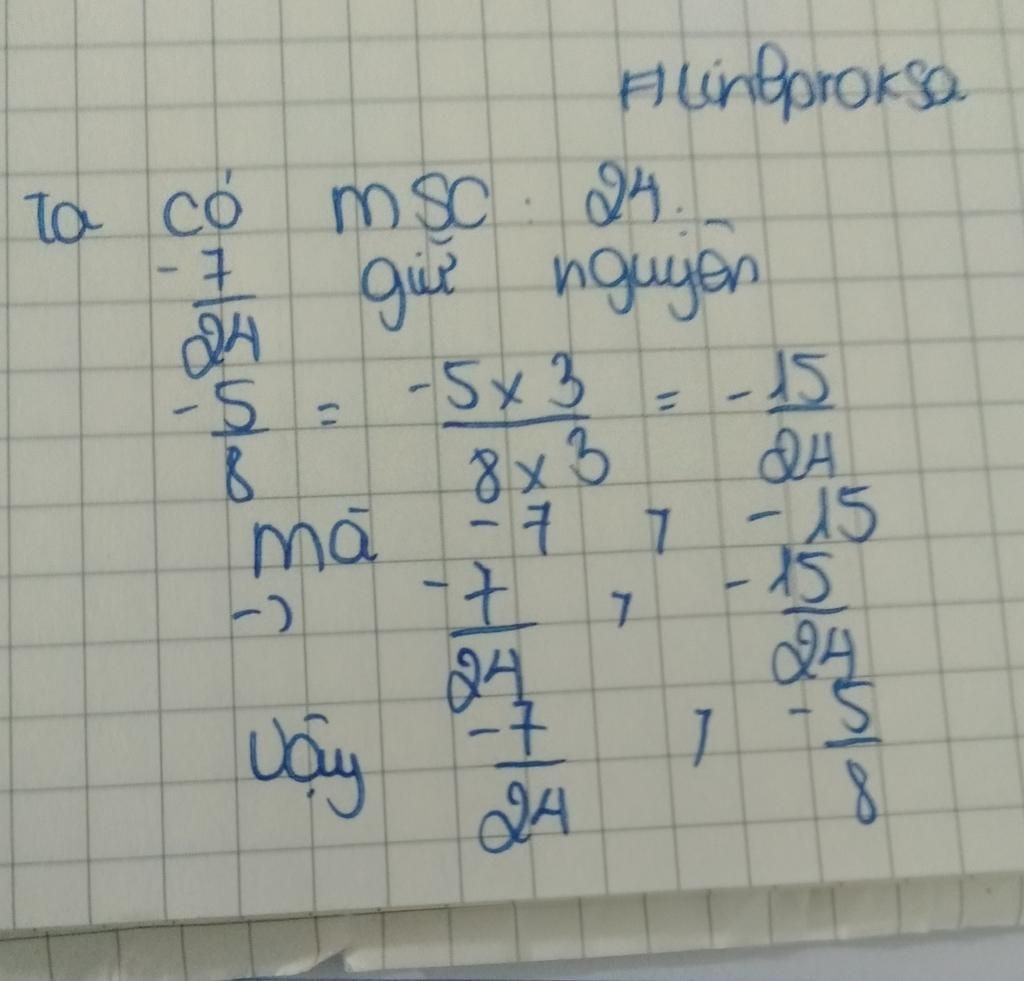 #linhproksa
Ta có MSC: 24.
-7/24 giữ nguyên
-5/8 = -5x3/8x3 = -15/24
mà -7 > -15
-> -7/24 > -15/24
Vậy -7/24 > -5/8